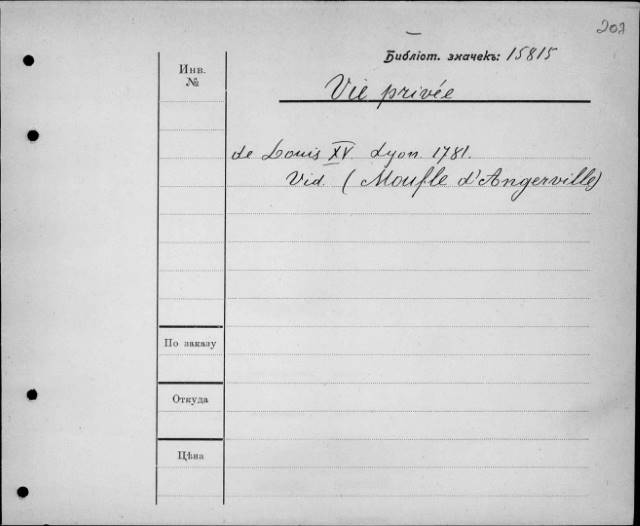 202
Библіот. значекъ: 15815
Инв.
№
Vie privée
de Louis XV. Lyon. 1781.
Vid. (Moufle d'Angerville)
По заказу
Откуда
Цѣна